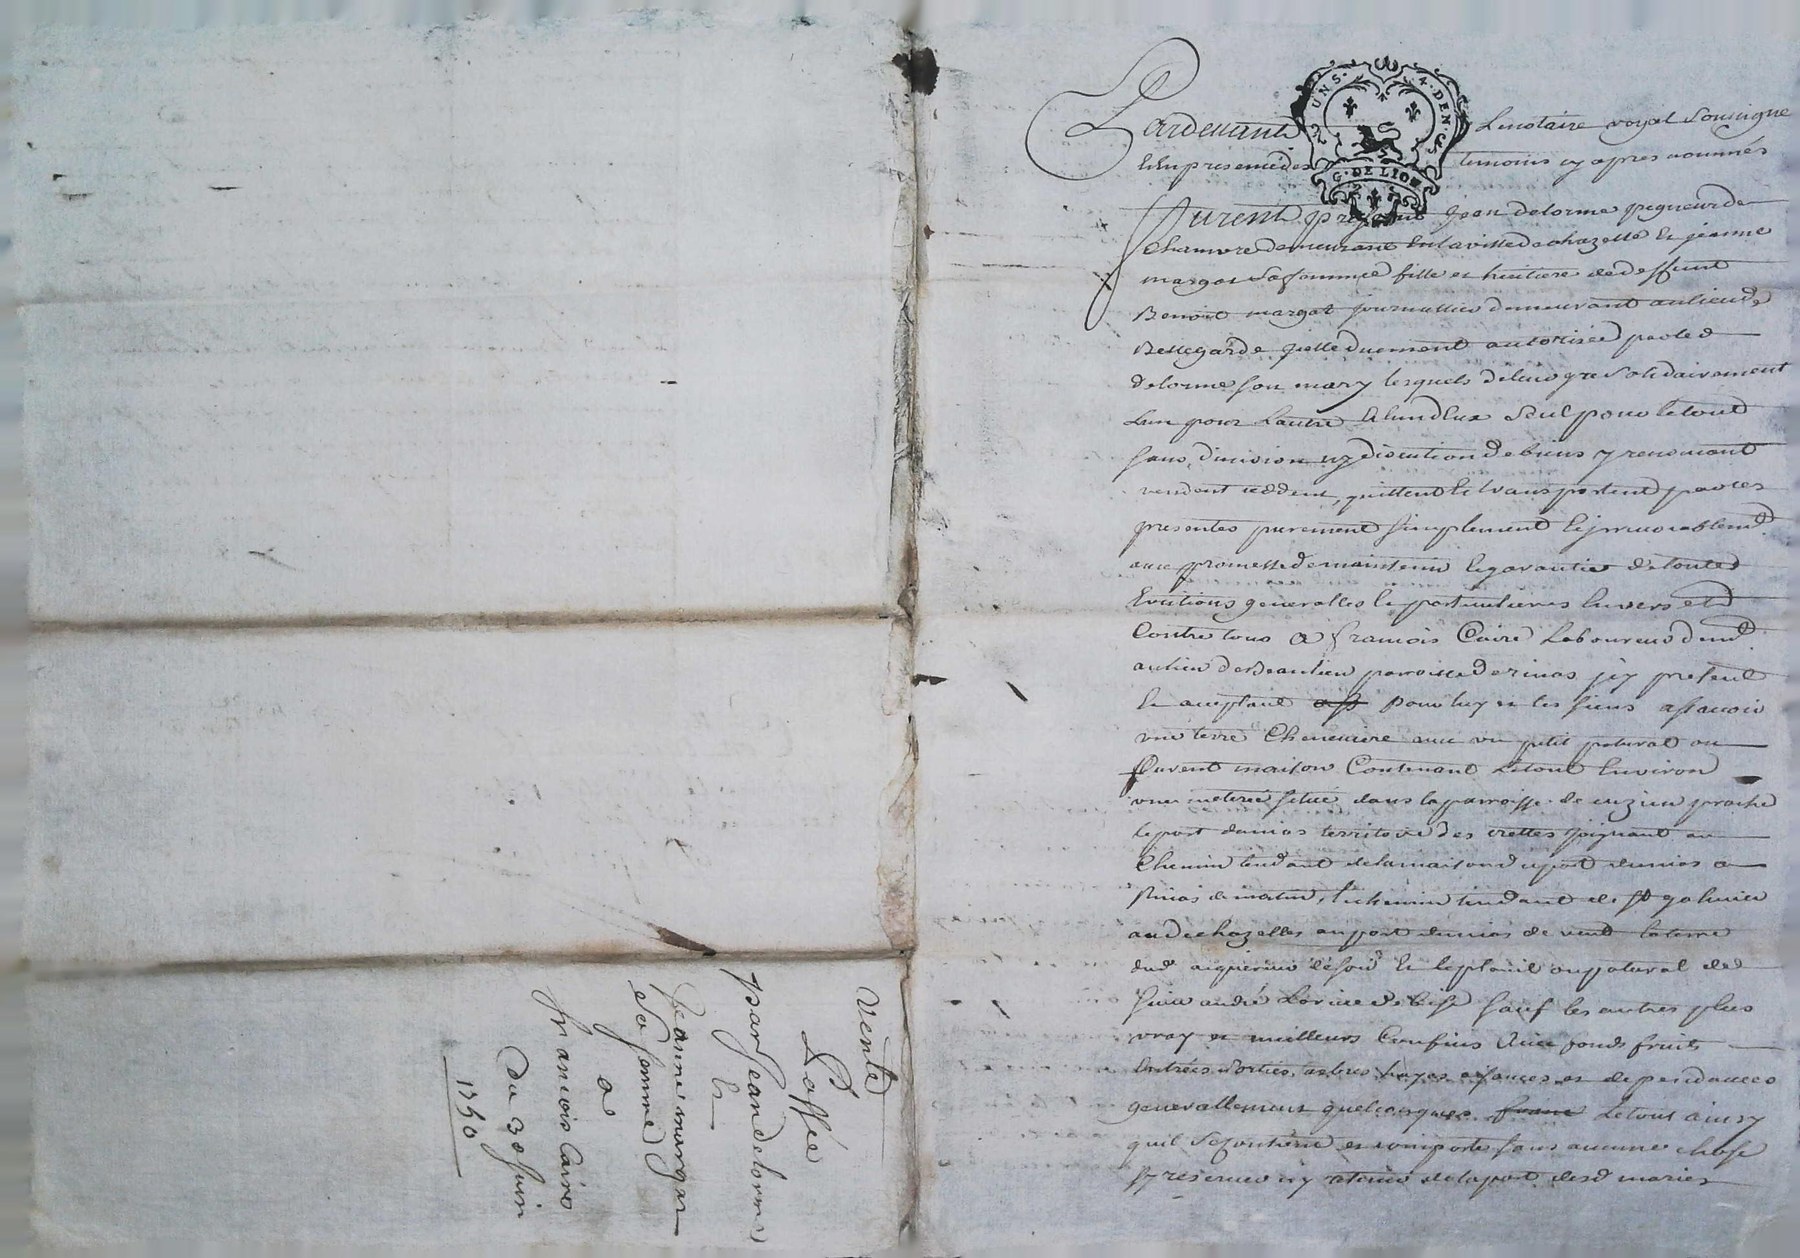 Vente
passée
par Jean delorme
et
Jeanne margat
sa femme
a
francois Caire
Du 30 Juin
1760
UN S. 4 DEN
G. DE LION
Pardevant Le notaire royal Soussigne
et En presence des temoins cy apres nommés
Furent presents Jean delorme pegneur de
chanvre demeurant En la ville de chazelle Et jeanne
margat sa femme fille et heritiere de deffunt
Benoit margat journallier demeurant au lieu de
Bellegarde jcelle duement autorisée par led
delorme son mary lesquels de leur gre solidairement
Lun pour Lautre Et lun deux seul pour le tout
sans division ny discution de biens y renonceant
vendent ceddent, quittent Et transportent par ces
presentes purement simplement Et jrrevocablemt
avec promesse de maintenir Et garantir de toutes
Evictions generalles Et particulieres Envers et
Contre tous a francois Caire Laboureur demt
au lieu de Beaulieu parroisse de rivas jcy present
Et acceptant pour luy et les siens assavoir
une terre Cheneviere avec un petit patural ou
furent maison Contenant Le tout Environ
une meterée situé dans la parroisse de cuzieu proche
le port de rivas territoire des joignant au
Chemin tendant de la maison du port de rivas a
Rivas de matin, le chemin tendant de St galmier
aud chazelles au port de rivas de vent la terre
dud de soir Et le patural de
sieur andré de bise sauf les autres plus
vray et meilleurs Confins avec fonds fruits
Entrées sorties, arbres hayes aysances et dependances
generallement quelconques Le tout ainsy
quil se contient et comporte sans aucune chose
sy reserver ny retenir de la part desd mariés